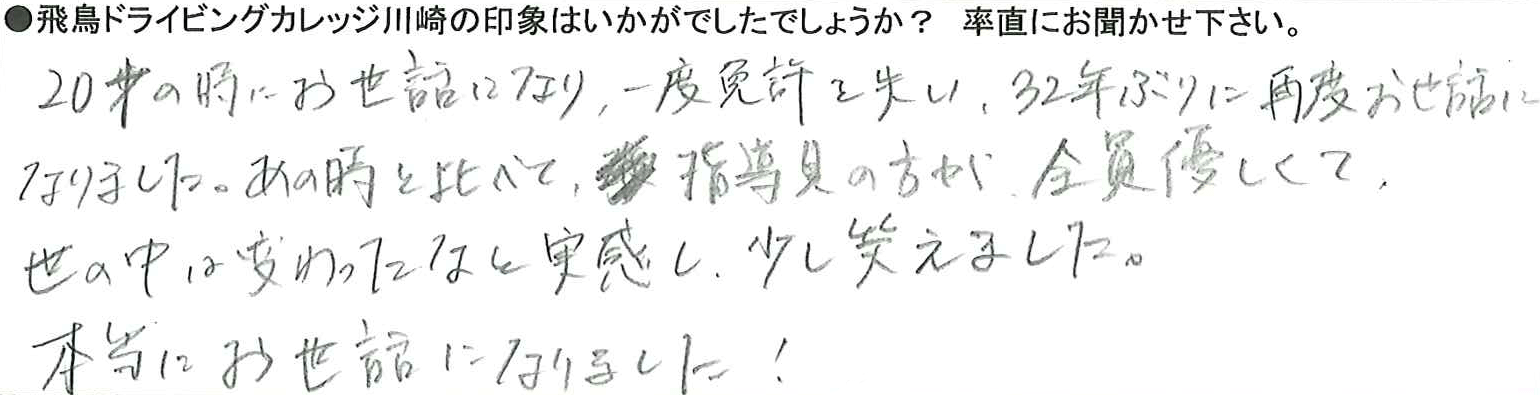 ●飛鳥ドライビングカレッジ川崎の印象はいかがでしたでしょうか？ 率直にお聞かせ下さい。
20才の時にお世話になり、一度免許を失い、32年ぶりに再度お世話に
なりました。あの時と比べて、指導員の方が、全員優しくて、
世の中は変わったなと実感し、少し笑えました。
本当にお世話になりました！